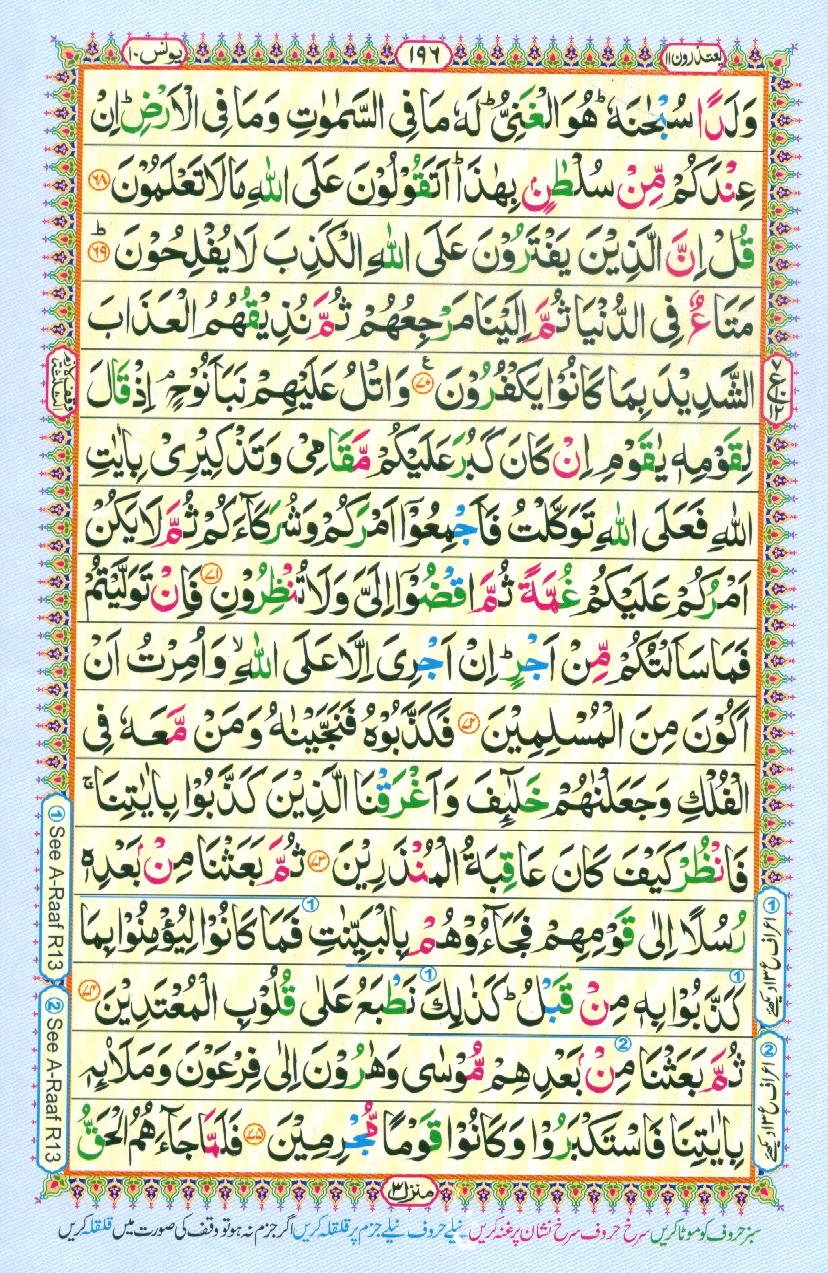 یعتذرون ۱۱
۱۹۶
یونس ۱۰
وَلَدًا سُبْحٰنَهٗ ؕ هُوَ الْغَنِیُّ ؕ لَهٗ مَا فِی السَّمٰوٰتِ وَمَا فِی الْاَرْضِ ؕ اِنْ
عِنْدَكُمْ مِّنْ سُلْطٰنٍۭ بِهٰذَا ؕ اَتَقُوْلُوْنَ عَلَی اللّٰهِ مَا لَا تَعْلَمُوْنَ ۶۸
قُلْ اِنَّ الَّذِیْنَ یَفْتَرُوْنَ عَلَی اللّٰهِ الْكَذِبَ لَا یُفْلِحُوْنَ ؕ ۶۹
مَتَاعٌ فِی الدُّنْیَا ثُمَّ اِلَیْنَا مَرْجِعُهُمْ ثُمَّ نُذِیْقُهُمُ الْعَذَابَ
الشَّدِیْدَ بِمَا كَانُوْا یَكْفُرُوْنَ ۷۰ ع وَاتْلُ عَلَیْهِمْ نَبَاَ نُوْحٍ ۘ اِذْ قَالَ
لِقَوْمِهٖ یٰقَوْمِ اِنْ كَانَ كَبُرَ عَلَیْكُمْ مَّقَامِیْ وَتَذْكِیْرِیْ بِاٰیٰتِ
اللّٰهِ فَعَلَی اللّٰهِ تَوَكَّلْتُ فَاَجْمِعُوْۤا اَمْرَكُمْ وَشُرَكَآءَكُمْ ثُمَّ لَا یَكُنْ
اَمْرُكُمْ عَلَیْكُمْ غُمَّةً ثُمَّ اقْضُوْۤا اِلَیَّ وَلَا تُنْظِرُوْنِ ۷۱ فَاِنْ تَوَلَّیْتُمْ
فَمَا سَاَلْتُكُمْ مِّنْ اَجْرٍ ؕ اِنْ اَجْرِیَ اِلَّا عَلَی اللّٰهِ ۙ وَاُمِرْتُ اَنْ
اَكُوْنَ مِنَ الْمُسْلِمِیْنَ ۷۲ فَكَذَّبُوْهُ فَنَجَّیْنٰهُ وَمَنْ مَّعَهٗ فِی
الْفُلْكِ وَجَعَلْنٰهُمْ خَلٰٓىِٕفَ وَاَغْرَقْنَا الَّذِیْنَ كَذَّبُوْا بِاٰیٰتِنَا ۚ
فَانْظُرْ كَیْفَ كَانَ عَاقِبَةُ الْمُنْذَرِیْنَ ۷۳ ثُمَّ بَعَثْنَا مِنْۢ بَعْدِهٖ
رُسُلًا اِلٰی قَوْمِهِمْ فَجَآءُوْهُمْ بِالْبَیِّنٰتِ فَمَا كَانُوْا لِیُؤْمِنُوْا بِمَا
كَذَّبُوْا بِهٖ مِنْ قَبْلُ ؕ كَذٰلِكَ نَطْبَعُ عَلٰی قُلُوْبِ الْمُعْتَدِیْنَ ۷۴
ثُمَّ بَعَثْنَا مِنْۢ بَعْدِهِمْ مُّوْسٰی وَهٰرُوْنَ اِلٰی فِرْعَوْنَ وَمَلَا۟ىِٕهٖ
بِاٰیٰتِنَا فَاسْتَكْبَرُوْا وَكَانُوْا قَوْمًا مُّجْرِمِیْنَ ۷۵ فَلَمَّا جَآءَهُمُ الْحَقُّ
① See A-Raaf R13
② See A-Raaf R13
منزل ۳
سبز حروف کو موٹا کریں سرخ حروف سرخ نشان پر غنہ کریں نیلے حروف نیلے جزم پر قلقلہ کریں اگر جزم نہ ہو تو وقف کی صورت میں قلقلہ کریں